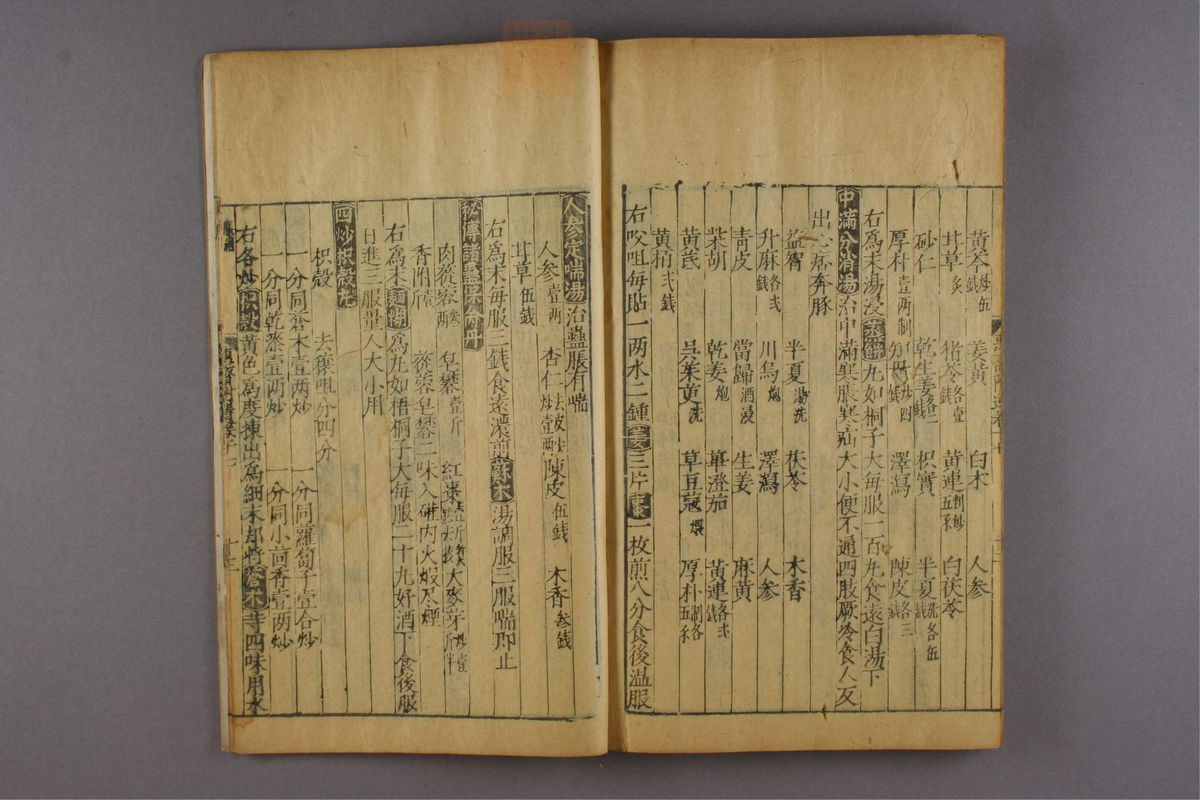 黃芩 炒伍錢 姜黃 白朮 人參
甘草 炙 猪苓 各壹錢 黃連 制炒五錢 白茯苓
砂仁 乾生姜 枳實 半夏 洗各伍錢
厚朴 壹兩制 知母 炒四錢 澤瀉 陳皮 各三錢
右爲末湯浸蒸餅丸如桐子大每服一百丸食遠白湯下
中滿分消湯治中滿寒脹寒疝大小便不通四肢厥冷食入反
出心痞奔豚
益智 半夏 湯洗 茯苓 木香
升麻 各弍錢 川烏 炮 澤瀉 人參
青皮 當歸 酒浸 生姜 麻黃
柴胡 乾姜 炮 蓽澄茄 黃連 各弍錢
黃芪 吳茱萸 洗 草豆蔻 煨 厚朴 制各五錢
黃栢 弍錢
右㕮咀每貼一兩水二鍾姜三片棗一枚煎八分食後温服
人參定喘湯治蠱脹有喘
人參 壹兩 杏仁 去皮炒壹兩 陳皮 伍錢 木香 叁錢
甘草 伍錢
右爲末每服三錢食遠濃煎蘇木湯調服三服喘即止
秘傳諸蠱保命丹
肉蓯蓉 叁兩 皂礬 壹斤 紅棗 大麥芽 炒壹斤半
香附
蓯蓉皂礬二味入礶内火煆尽煙
右爲末麵糊爲丸如梧桐子大每服二十九好酒下食後服
日進三服量人大小用
四炒枳殼丸
枳殼 去穰咀分四分
一分同蒼朮壹兩炒 一分同蘿蔔子壹合炒
一分同乾漆壹兩炒 一分同小茴香壹兩炒
右各炒枳殼黃色爲度揀出爲細末却將蒼朮等四味用水